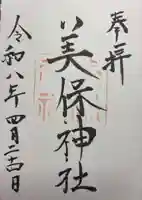 奉拝
美保神社
令和八年四月二十四日